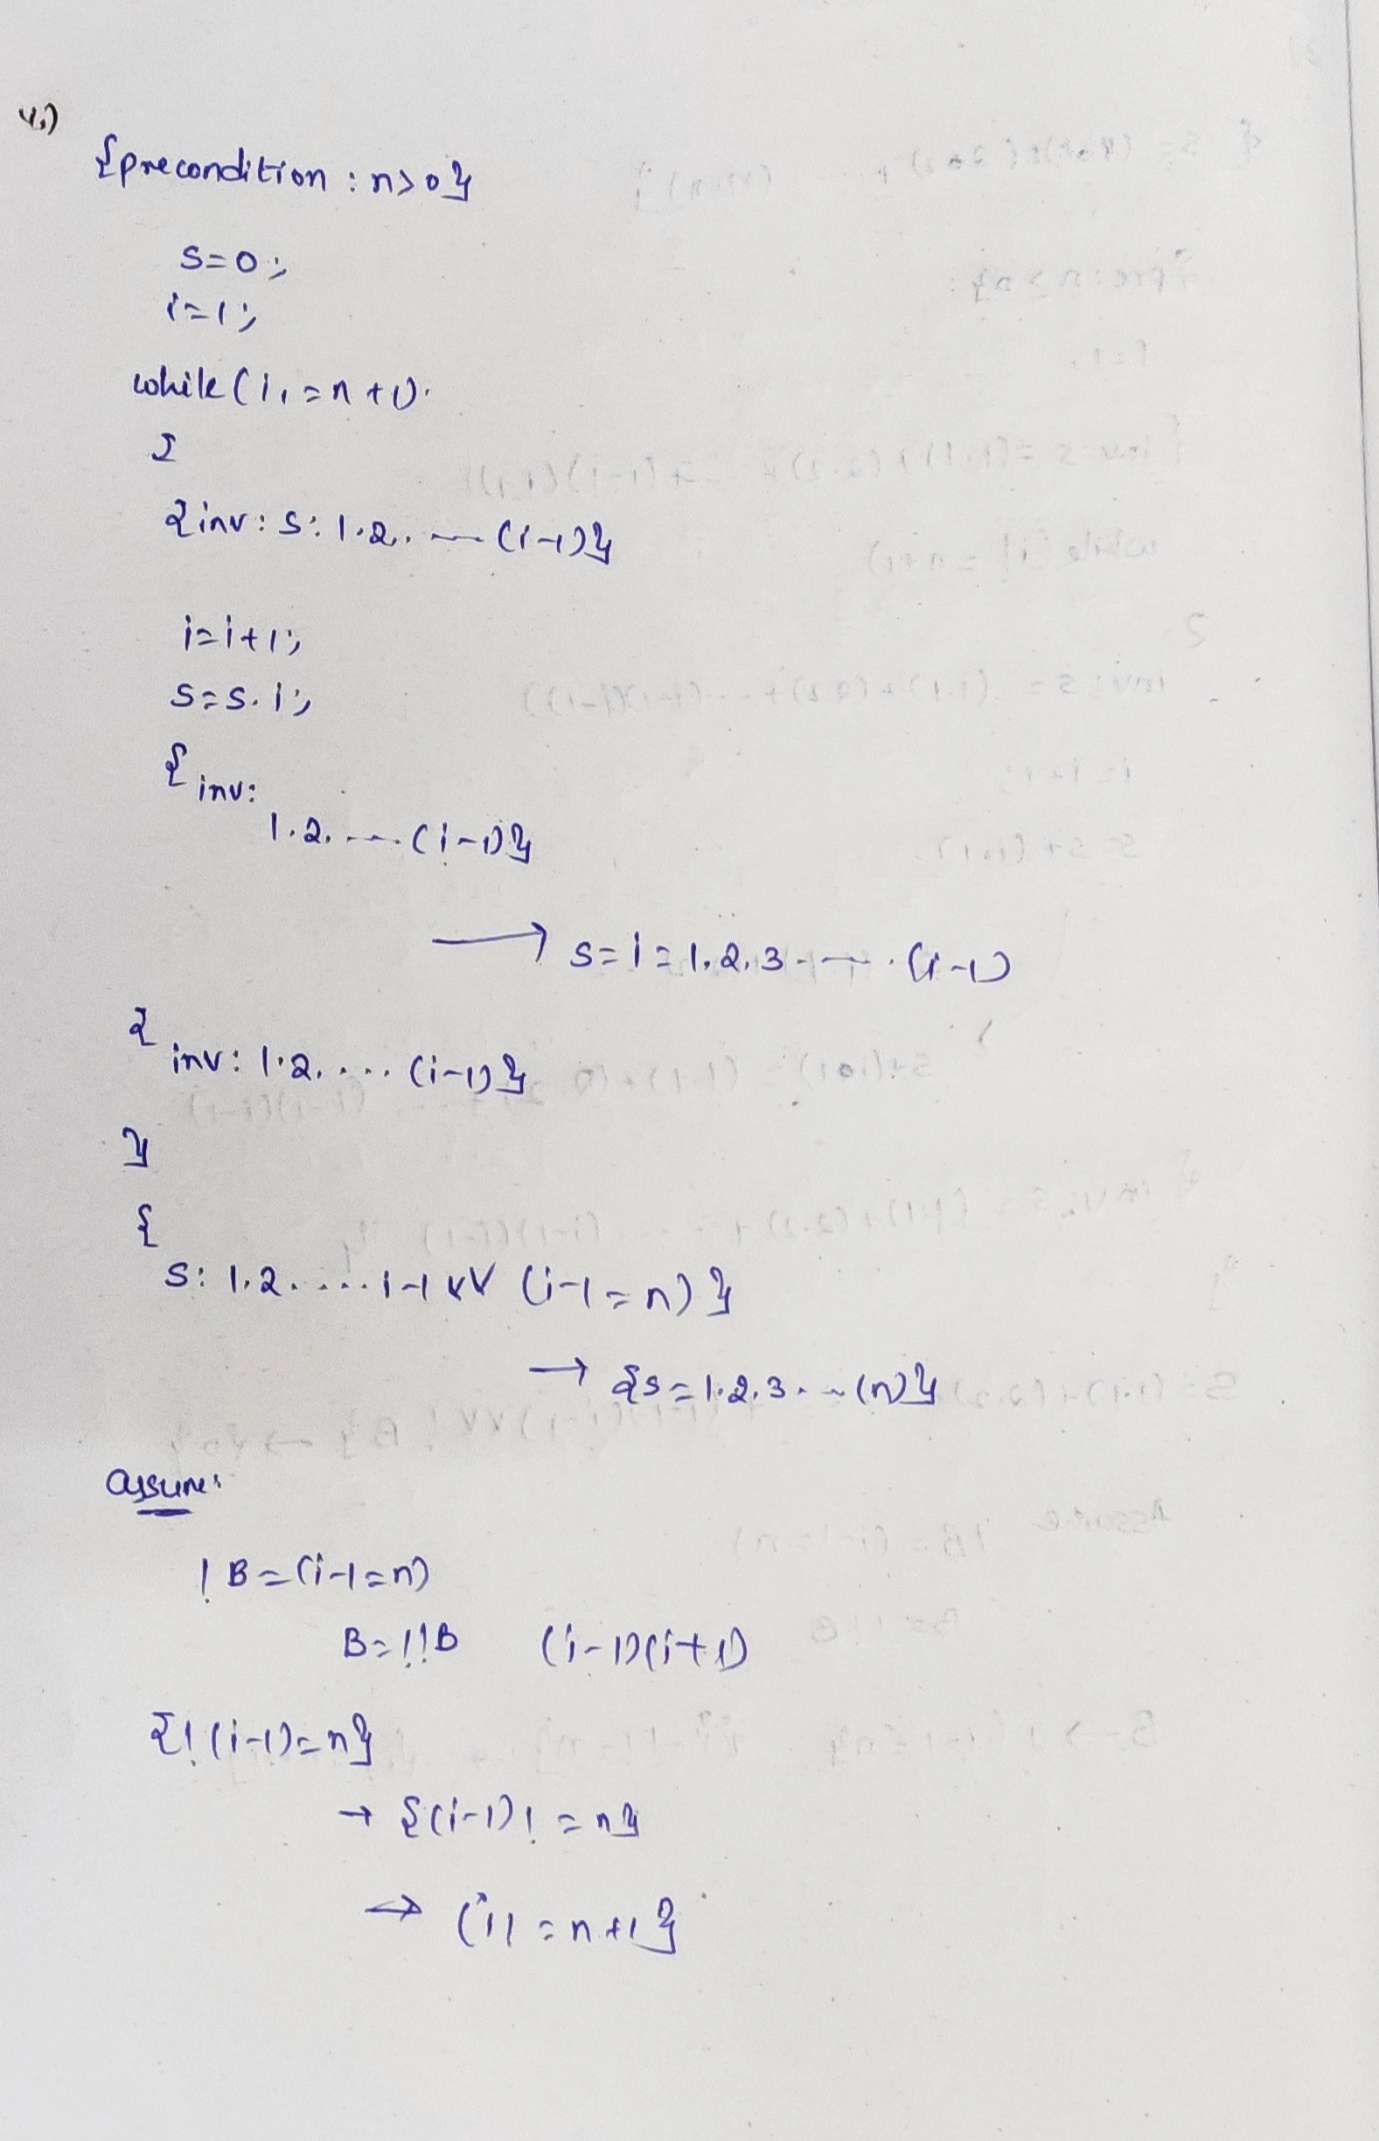 4.)
{precondition : n>0}
s=0;
i=1;
while(i!=n+1)
{
{inv: s: 1.2. ... (i-1)}
i=i+1;
s=s.i;
{inv:
1.2. ... (i-1)}
→ s=i=1.2.3. ... (i-1)
{
inv: 1.2. ... (i-1)}
}
{
s: 1.2. ... i-1 && (i-1=n)}
→ {s=1.2.3. ... (n)}
assume:
!B=(i-1=n)
B=!!B (i-1)(i+1)
{!(i-1)=n}
→ {(i-1)!=n}
→ (i!=n+1}